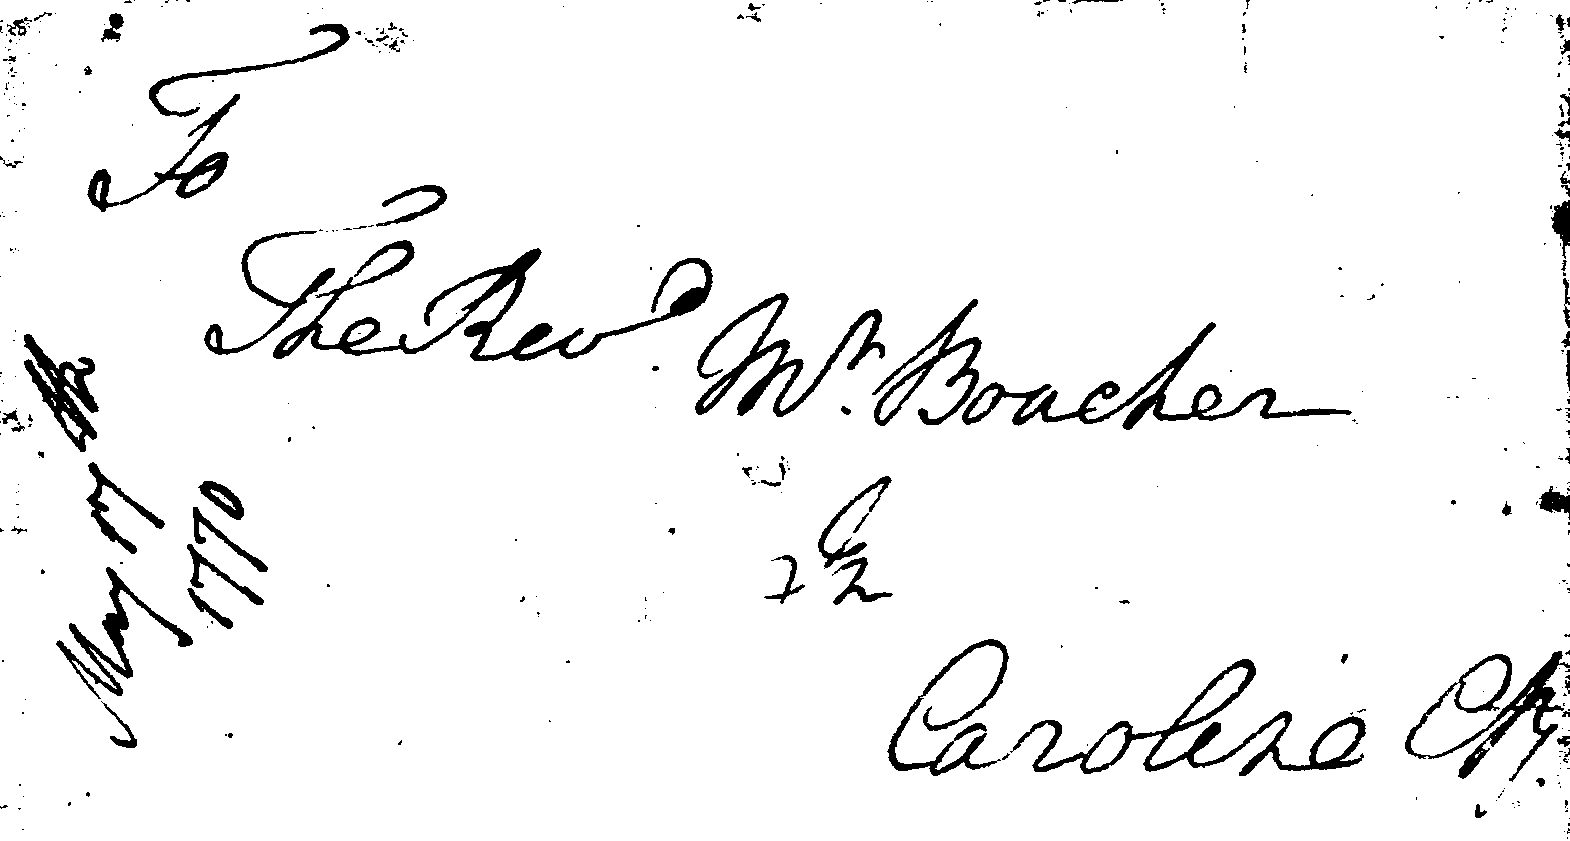 To
The Revd. Mr. Boucher
In
Caroline Cty.
May 17
1770